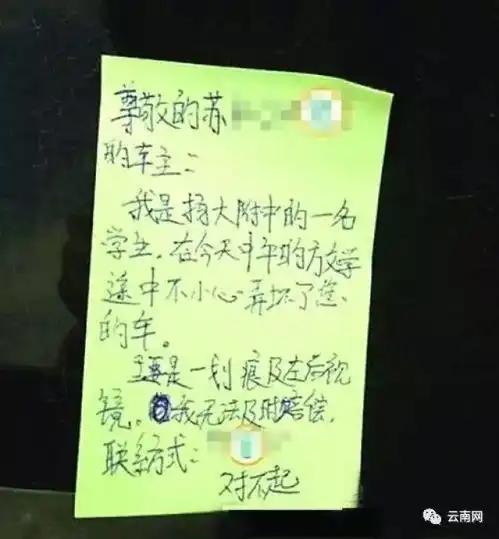 尊敬的苏
的车主：
我是扬大附中的一名
学生，在今天中午的放学
途中不小心弄坏了您
的车。
主要是一划痕及左后视
镜。我无法及时赔偿，
联系方式：
对不起
云南网